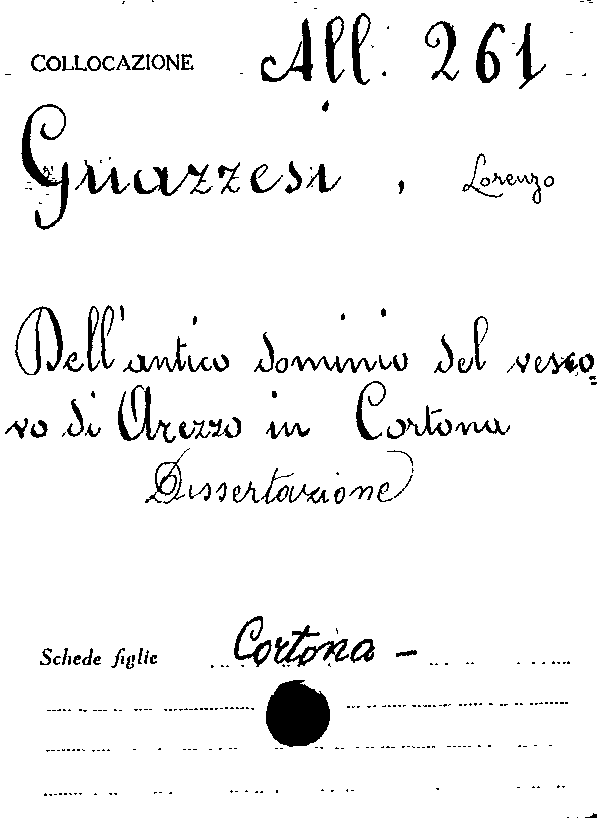 COLLOCAZIONE All. 261
Guazzesi, Lorenzo
Dell'antico dominio del vesco=
vo di Arezzo in Cortona
Dissertazione
Schede figlie Cortona -